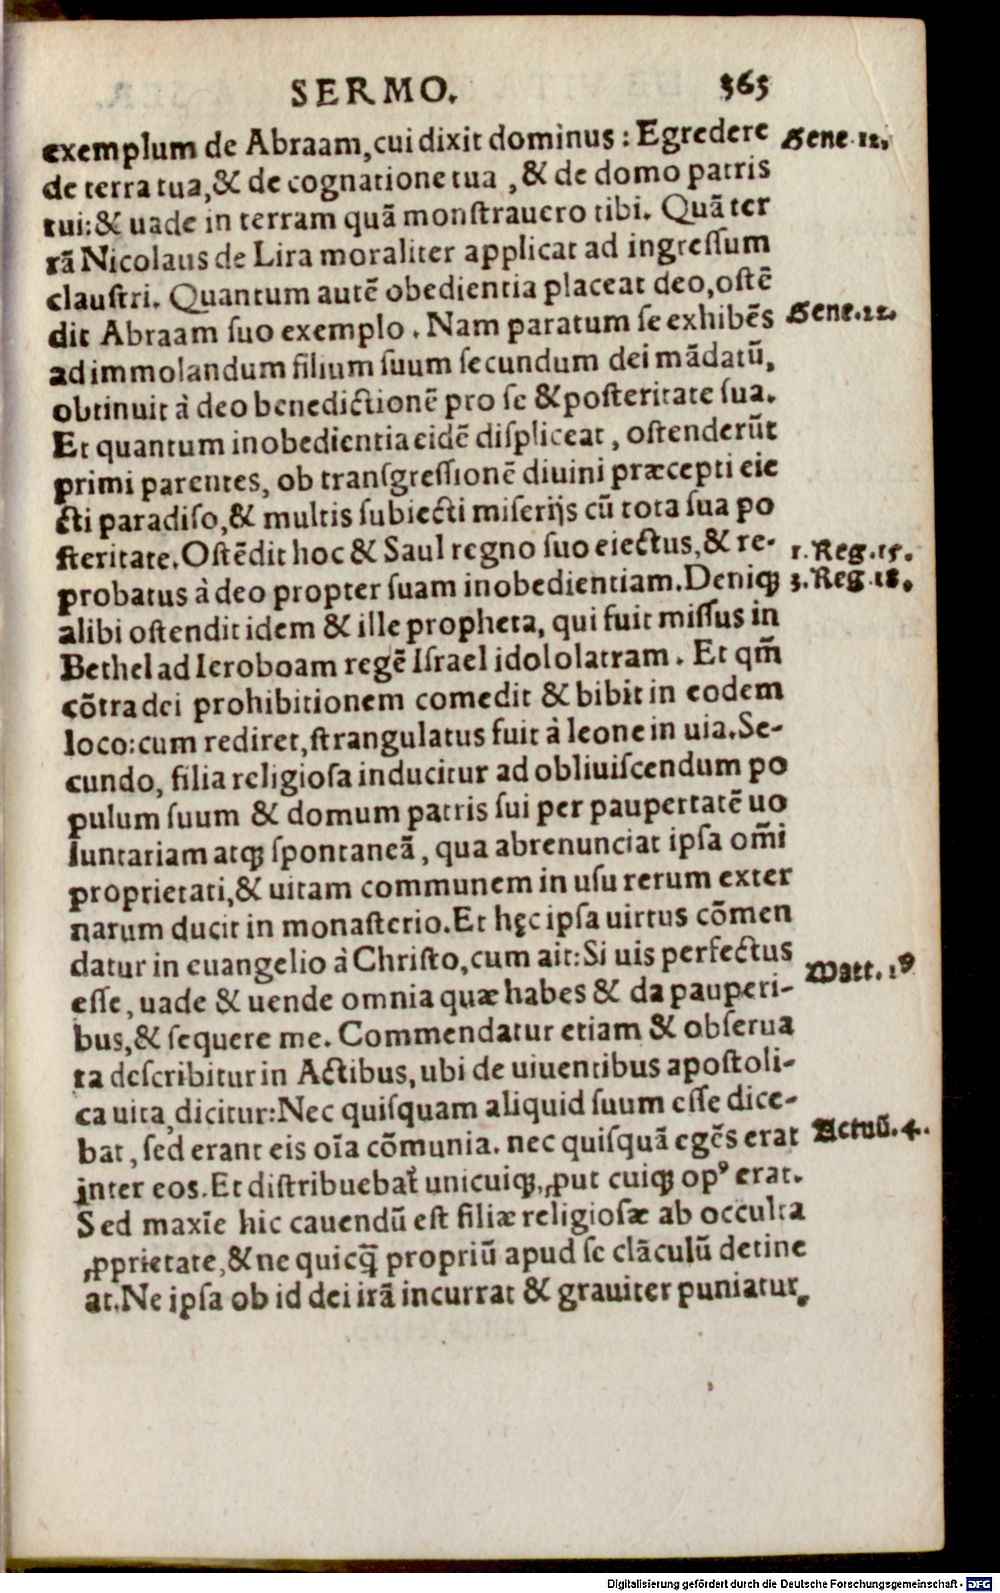 SERMO. 365
exemplum de Abraam, cui dixit dominus: Egredere Gene. 12.
de terra tua, & de cognatione tua, & de domo patris
tui: & uade in terram quā monſtrauero tibi. Quā ter
rā Nicolaus de Lira moraliter applicat ad ingreſſum
clauſtri. Quantum autē obedientia placeat deo, oſtē
dit Abraam ſuo exemplo. Nam paratum ſe exhibēs Gene. 22.
ad immolandum filium ſuum ſecundum dei mādatū,
obtinuit à deo benedictionē pro ſe & poſteritate ſua.
Et quantum inobedientia eidē diſpliceat, oſtenderūt
primi parentes, ob tranſgreſſionē diuini præcepti eie
cti paradiſo, & multis ſubiecti miſerijs cū tota ſua po
ſteritate. Oſtēdit hoc & Saul regno ſuo eiectus, & re- 1. Reg. 15.
probatus à deo propter ſuam inobedientiam. Deniqꝫ 3. Reg. 18.
alibi oſtendit idem & ille propheta, qui fuit miſſus in
Bethel ad Ieroboam regē Iſrael idololatram. Et qm̄
cōtra dei prohibitionem comedit & bibit in eodem
loco: cum rediret, ſtrangulatus fuit à leone in uia. Se-
cundo, filia religioſa inducitur ad obliuiſcendum po
pulum ſuum & domum patris ſui per paupertatē uo
luntariam atqꝫ ſpontaneā, qua abrenunciat ipſa om̄i
proprietati, & uitam communem in uſu rerum exter
narum ducit in monaſterio. Et hęc ipſa uirtus cōmen
datur in euangelio à Chriſto, cum ait: Si uis perfectus Matt. 19
eſſe, uade & uende omnia quæ habes & da pauperi-
bus, & ſequere me. Commendatur etiam & obſerua
ta deſcribitur in Actibus, ubi de uiuentibus apoſtoli-
ca uita, dicitur: Nec quiſquam aliquid ſuum eſſe dice-
bat, ſed erant eis oīa cōmunia. nec quiſquā egēs erat Actuū. 4.
inter eos. Et diſtribuebat᷑ unicuiqꝫ, ꝓut cuiqꝫ opꝰ erat.
Sed maxīe hic cauendū eſt filiæ religioſæ ab occulta
ꝓprietate, & ne quicq̄ propriū apud ſe clāculū detine
at. Ne ipſa ob id dei irā incurrat & grauiter puniatur,
Digitalisierung gefördert durch die Deutsche Forschungsgemeinschaft - DFG